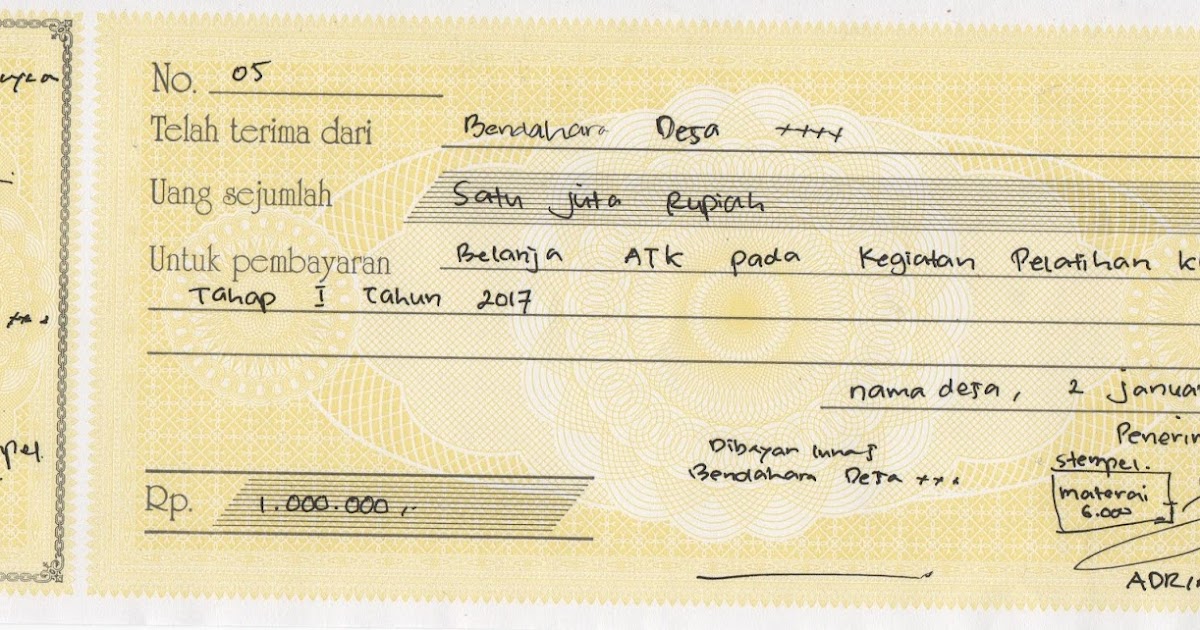 No. 05
Telah terima dari Bendahara Desa ++++
Uang sejumlah Satu juta Rupiah
Untuk pembayaran Belanja ATK pada Kegiatan Pelatihan
Tahap I Tahun 2017
nama desa, 2 Januar
Penerim
Dibayar lunas
stempel.
Bendahara Desa +++
materai
6.000
Rp. 1.000.000,-
ADRI
pel.